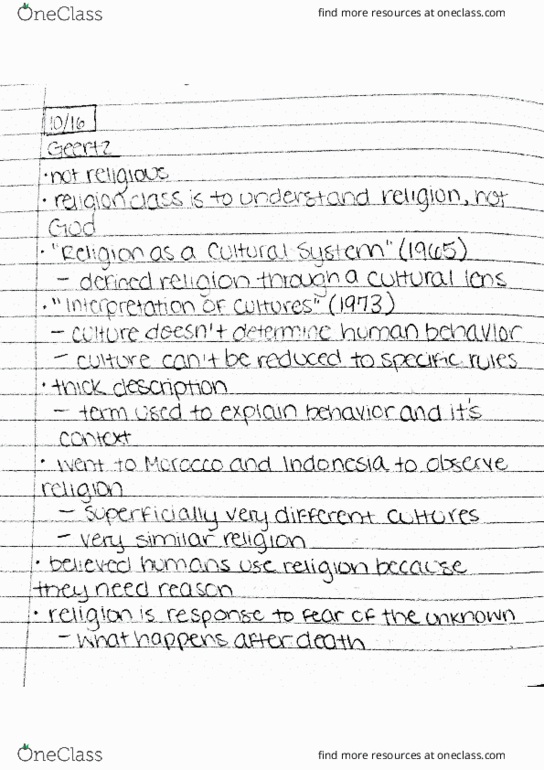 OneClass
find more resources at oneclass.com
10/16
Geertz
• not religious
• religion class is to understand religion, not
God
• "Religion as a Cultural System" (1965)
– defined religion through a cultural lens
• "Interpretation of Cultures" (1973)
– culture doesn't determine human behavior
– culture can't be reduced to specific rules
• thick description
– term used to explain behavior and it's
context
• went to Morocco and Indonesia to observe
religion
– superficially very different cultures
– very similar religion
• believed humans use religion because
they need reason
• religion is response to fear of the unknown
– what happens after death
OneClass
find more resources at oneclass.com